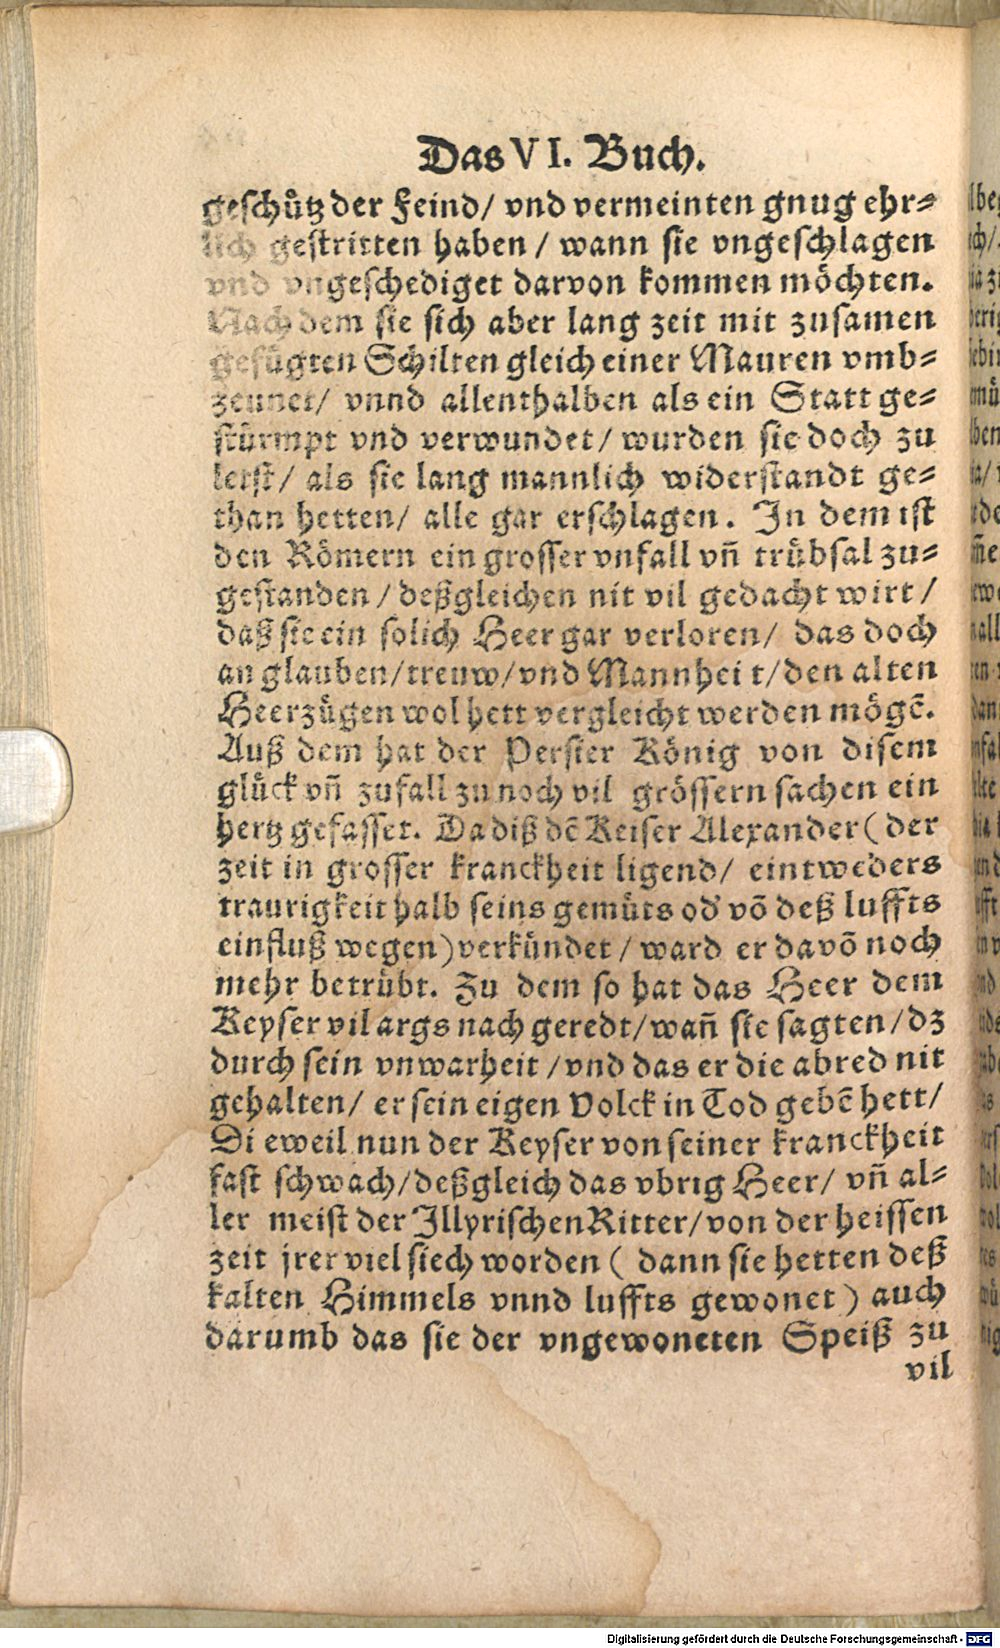 Das VI. Buch.
geschütz der Feind/ vnd vermeinten gnug ehr⸗
lich gestritten haben / wann sie vngeschlagen
vnd vngeschediget darvon kommen möchten.
Nach dem sie sich aber lang zeit mit zusamen
gefügten Schilten gleich einer Mauren vmb⸗
zeunet/ vnnd allenthalben als ein Statt ge⸗
stürmpt vnd verwundet/ wurden sie doch zu
letst/ als sie lang mannlich widerstandt ge⸗
than hetten/ alle gar erschlagen. In dem ist
den Römern ein grosser vnfall vñ trübsal zu⸗
gestanden / deßgleichen nit vil gedacht wirt /
daß sie ein solich Heer gar verloren/ das doch
an glauben/treuw/vnd Mannheit/den alten
Heerzügen wol hett vergleicht werden mögẽ.
Auß dem hat der Persier König von disem
glück vñ zufall zu noch vil grössern sachen ein
hertz gefasset. Da diß dẽ Keiser Alexander (der
zeit in grosser kranckheit ligend/ eintweders
traurigkeit halb seins gemüts od' võ deß luffts
einfluß wegen) verkündet / ward er davõ noch
mehr betrübt. Zu dem so hat das Heer dem
Keyser vil args nach geredt/wañ sie sagten/dz
durch sein vnwarheit /vnd das er die abred nit
gehalten/ er sein eigen Volck in Tod gebẽ hett/
Di eweil nun der Keyser von seiner kranckheit
fast schwach/deßgleich das vbrig Heer/ vñ al⸗
ler meist der Illyrischen Ritter/von der heissen
zeit jrer viel siech worden ( dann sie hetten deß
kalten Himmels vnnd luffts gewonet ) auch
darumb das sie der vngewoneten Speiß zu
vil
Digitalisierung gefördert durch die Deutsche Forschungsgemeinschaft - DFG